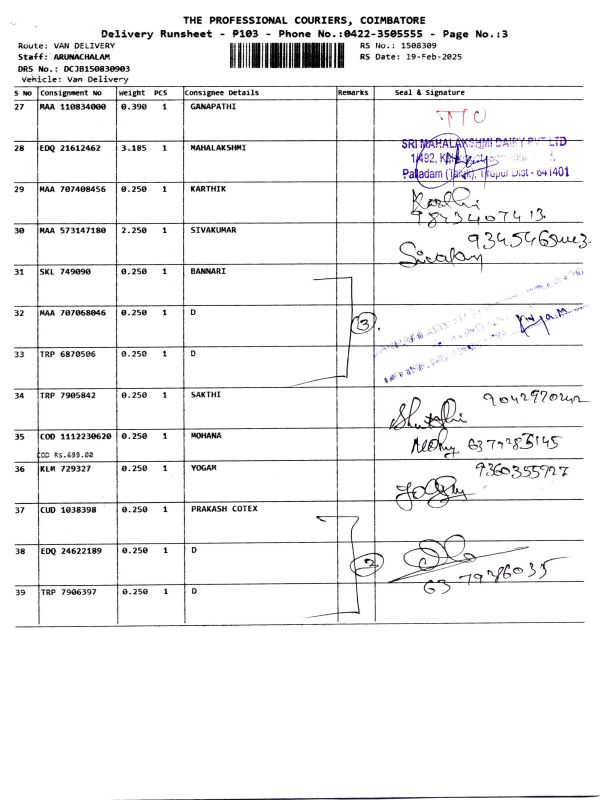 THE PROFESSIONAL COURIERS, COIMBATORE
Delivery Runsheet - P103 - Phone No.:0422-3505555 - Page No.:3
Route: VAN DELIVERY RS No.: 1508309
Staff: ARUNACHALAM RS Date: 19-Feb-2025
DRS No.: DCJB150830903
Vehicle: Van Delivery
S No Consignment No Weight PCS Consignee Details Remarks Seal & Signature
27 MAA 110834000 0.390 1 GANAPATHI
28 EDQ 21612462 3.185 1 MAHALAKSHMI SRI MAHALAKSHMI DAIRY PVT LTD
1/492,
Palladam (Taluk), Tirupur Dist - 641401
29 MAA 707408456 0.250 1 KARTHIK Karthi
9843407413
30 MAA 573147180 2.250 1 SIVAKUMAR
31 SKL 749090 0.250 1 BANNARI
32 MAA 707068046 0.250 1 D 3
33 TRP 6870506 0.250 1 D
34 TRP 7905842 0.250 1 SAKTHI 9042970242
35 COD 1112230620 0.250 1 MOHANA
COD Rs.699.00
36 KLM 729327 0.250 1 YOGAM 9360355927
37 CUD 1038398 0.250 1 PRAKASH COTEX
38 EDQ 24622189 0.250 1 D 2
39 TRP 7906397 0.250 1 D